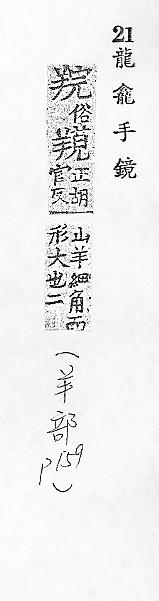 21 龍龕手鏡
羦俗正胡官反山羊細角而形大也二
(羊部 P159)